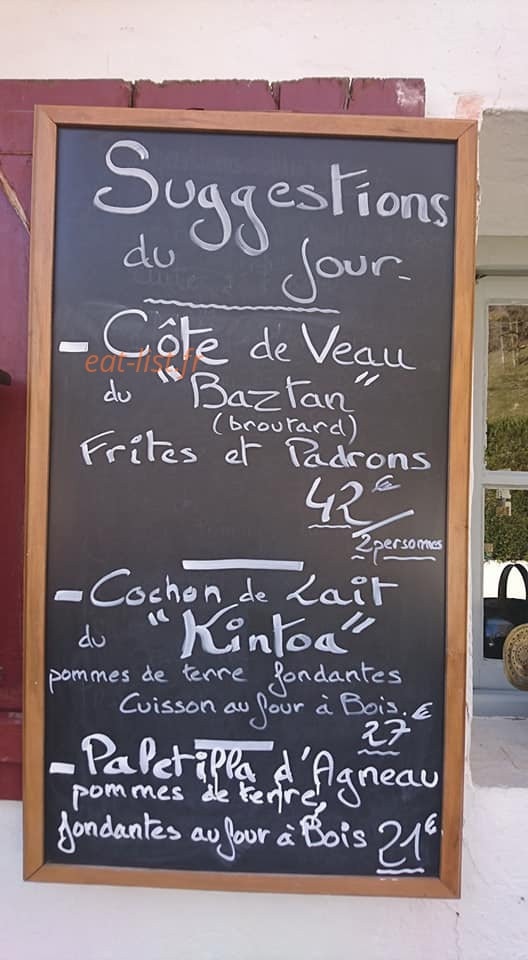 Suggestions
du Jour
- Côte de Veau
eat-list.fr
du "Baztan"
(broutard)
Frites et Padrons
42€/
2 personnes
- Cochon de Lait
du "Kintoa"
pommes de terre fondantes
Cuisson au four à Bois.
27€
- Paletilla d'Agneau
pommes de terre,
fondantes au four à Bois 21€